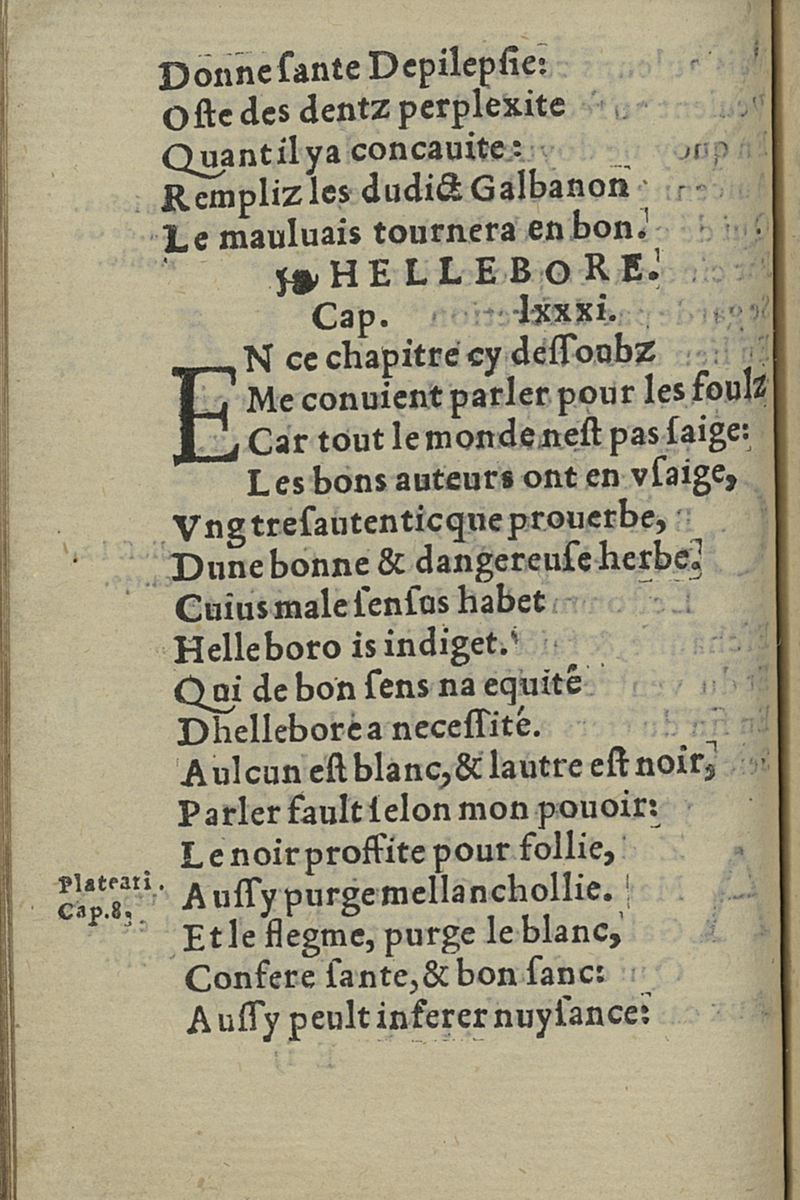 Donne ſante Depilepſie:
Oſte des dentz perplexite
Quant il ya concauite:
Rempliz les dudict Galbanon
Le mauluais tournera en bon.
HELLEBORE.
Cap. lxxxi.
EN ce chapitre cy deſſoubz
Me conuient parler pour les foulz
Car tout le monde neſt pas ſaige:
Les bons auteurs ont en vſaige,
Vng treſautenticque prouerbe,
Dune bonne & dangereuſe herbe.
Cuius male ſenſus habet
Helleboro is indiget.
Qui de bon ſens na equité
Dhellebore a neceſſité.
Aulcun eſt blanc, & lautre eſt noir,
Parler fault ſelon mon pouoir:
Le noir proffite pour follie,
Plateari. Cap.8,
Auſſy purge mellanchollie.
Et le flegme, purge le blanc,
Confere ſante, & bon ſanc:
Auſſy peult inferer nuyſance: